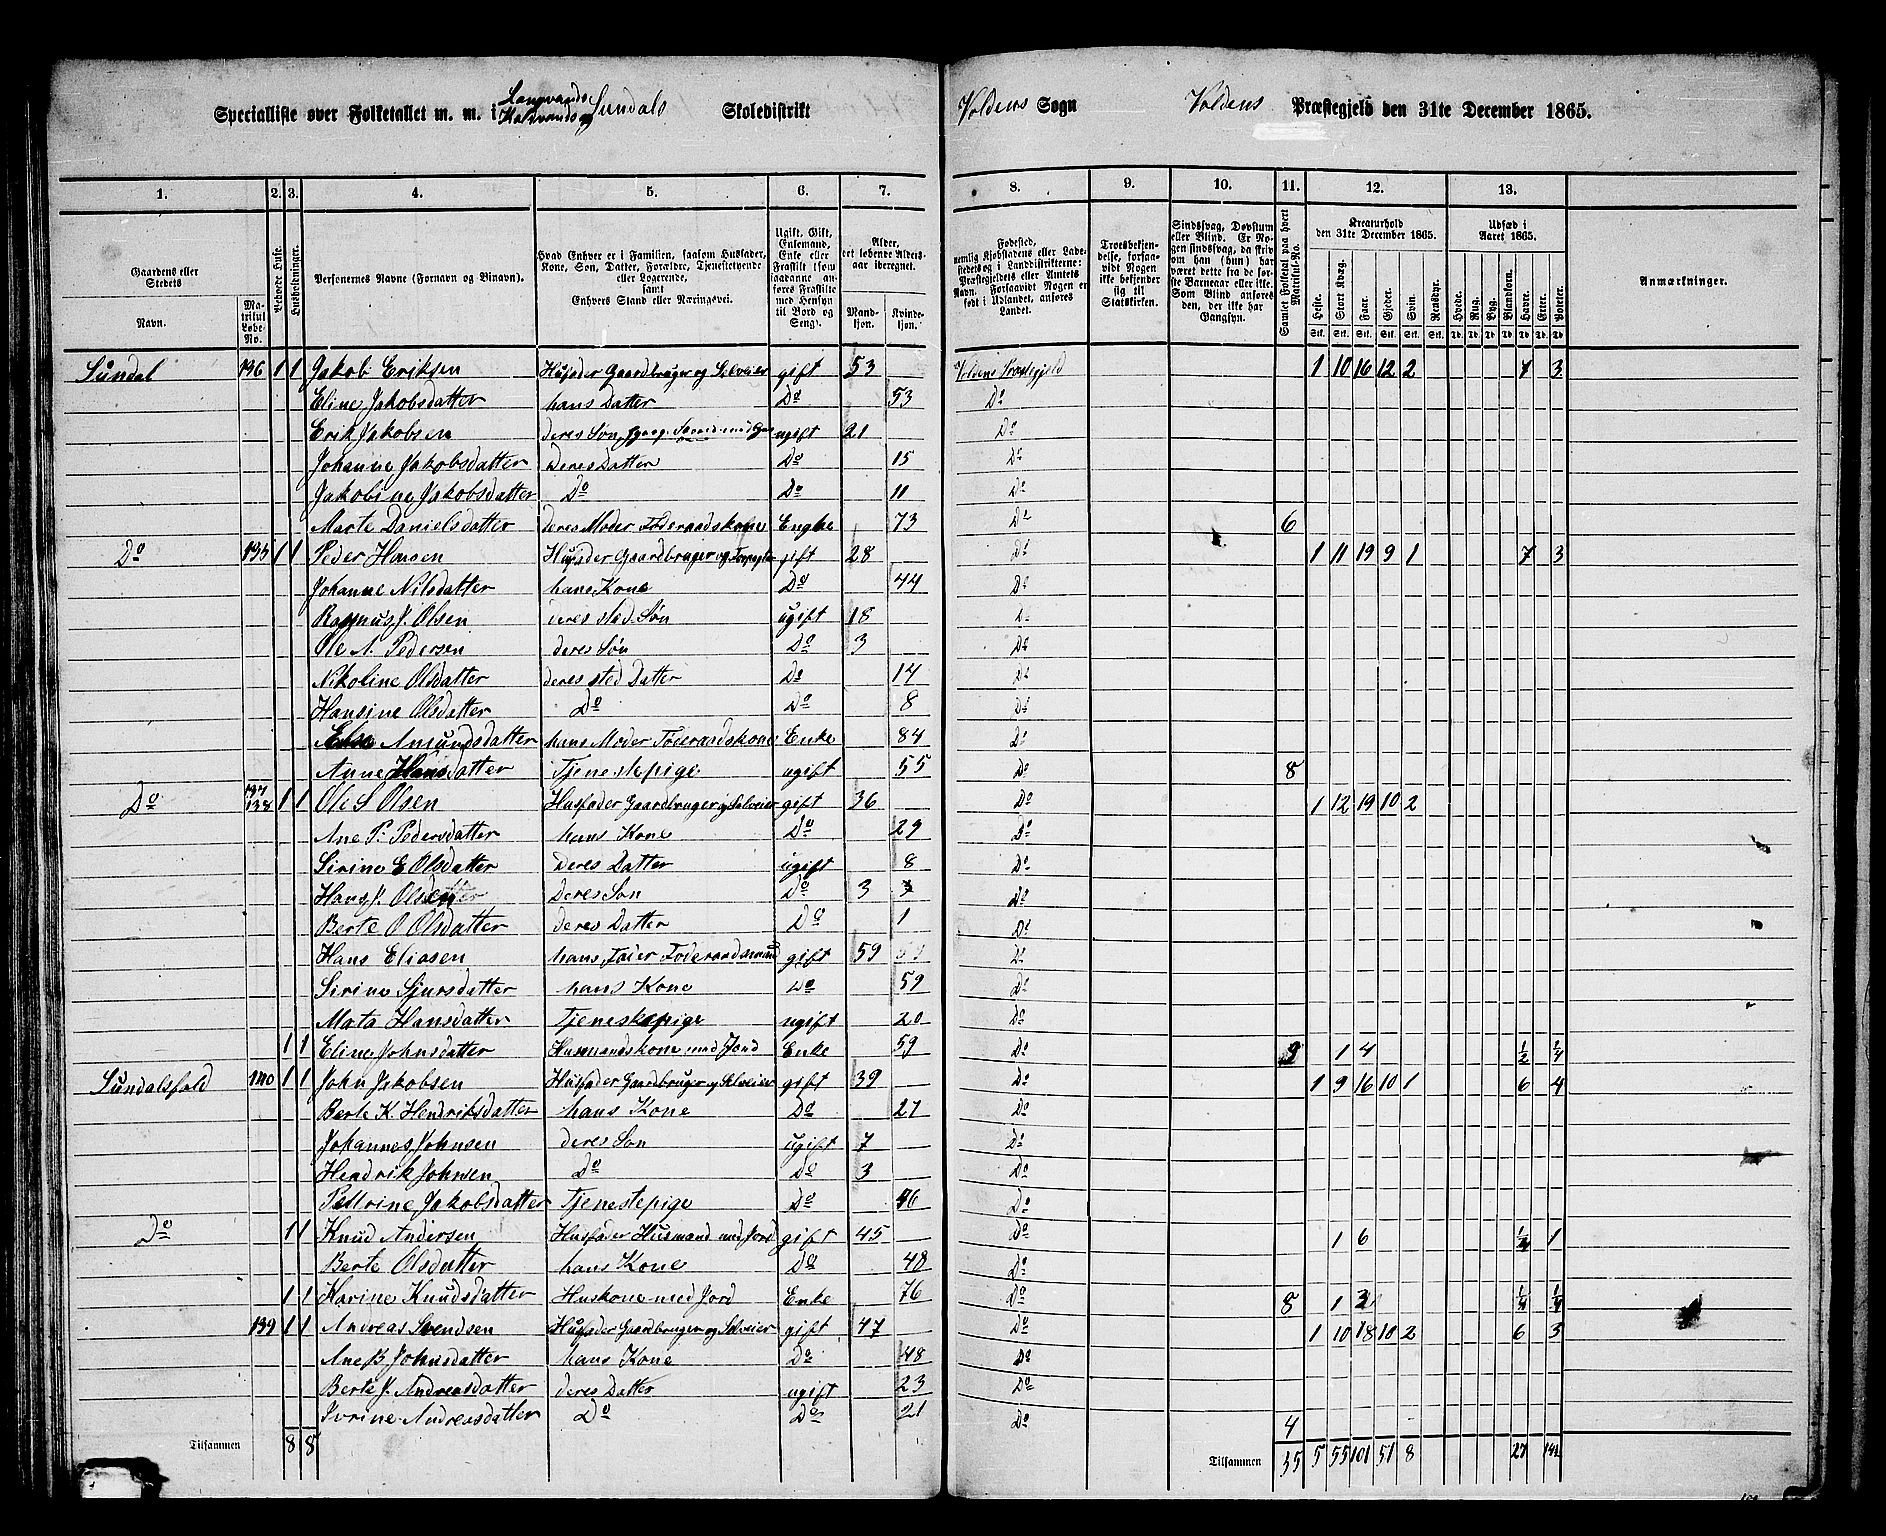 Specialliste over Folketallet m. m. i Langvands Kalvands og Sundals Skoledistrikt Voldens Sogn Voldens Præstegjeld den 31te December 1865.
1. 2. 3. 4. 5. 6. 7. 8. 9. 10. 11. 12. 13.
Gaardens eller Stedets Navn. Matrikul Løbe-No. Beboede Huse. Husholdninger. Personernes Navne (Fornavn og Binavn). Hvad Enhver er i Familien, saasom Husfader, Kone, Søn, Datter, Forældre, Tjenestetyende eller Logerende, samt Enhvers Stand eller Næringsvei. Ugift, Gift, Enkemand, Enke eller Fraskilt (som saadanne anføres Fraskilte med Hensyn til Bord og Seng). Alder, det løbende Alders-aar iberegnet. Mandkjøn. Kvindekjøn. Fødested, nemlig Kjøbstadens eller Ladestedets og i Landdistrikterne: Præstegjeldets eller Amtets Navn. Forsaavidt Nogen er født i Udlandet, anføres Landet. Troesbekjendelse, forsaavidt Nogen ikke bekjender sig til Statskirken. Sindssvag, Døvstum eller Blind. Er Nogen sindssvag, da skriv om han (hun) har været dette fra de første Barneaar eller ikke. Som Blind anføres den, der ikke har Gangsyn. Samlet Folketal paa hvert Matrikul-No. Kreaturhold den 31te December 1865. Heste. Stort Kvæg. Faar. Gjeder. Svin. Rensdyr. Udsæd i Aaret 1865. Hvede. Rug. Byg. Blandkorn. Havre. Erter. Poteter. Anmærkninger.
Sundal 136 1 1 Jakob Eriksen Husfader Gaardbruger og Selveier gift 53 Voldens Præstegjeld 1 10 16 12 2 7 3
Eline Jakobsdatter hans Datter Do 53 Do
Erik Jakobsen deres Søn ugift 21 Do
Johanne Jakobsdatter Deres Datter Do 15 Do
Jakobine Jakobsdatter Do Do 11 Do
Marte Danielsdatter deres Moder Føderaadskone Enke 73 Do 6
Do 135 1 1 Peder Hansen Husfader Gaardbruger og gift 28 Do 1 11 19 9 1 7 3
Johanne Nilsdatter hans Kone Do 44 Do
Rasmus J. Olsen deres sted Søn ugift 18 Do
Ole N. Pedersen deres Søn Do 3 Do
Nikoline Olsdatter deres sted Datter Do 14 Do
Hansine Olsdatter Do Do 8 Do
Else Amundsdatter hans Moder Føderaadskone Enke 84 Do
Anne Hansdatter Tjenestepige ugift 55 Do 8
Do 137 138 1 1 Ole S Olsen Husfader Gaardbruger og Selveier gift 36 Do 1 12 19 10 2
Ane P. Pedersdatter hans Kone Do 29 Do
Sirine E Olsdatter Deres Datter ugift 8 Do
Hans J. Olsen Deres Søn Do 3 3 Do
Berte O Olsdatter deres Datter Do 1 Do
Hans Eliasen hans Fader Føderaadsmand gift 59 Do
Sirine Sjursdatter hans Kone Do 59 Do
Marta Hansdatter Tjenestepige ugift 20 Do
1 1 Eline Johnsdatter Husmandskone med Jord Enke 59 Do 9 1 4 1/2 1/4
Sundalsfald 140 1 1 John Jakobsen Husfader Gaardbruger og Selveier gift 39 Do 1 9 16 10 1 6 4
Berte K. Hendriksdatter hans Kone Do 27 Do
Johannes Johnsen deres Søn ugift 7 Do
Hendrik Johnsen Do Do 3 Do
Petrine Jakobsdatter Tjenestepige Do 46 Do
Do 1 1 Knud Andersen Husfader Husmand med Jord gift 45 Do 1 6 1/2 1
Berte Olsdatter hans Kone Do 48 Do
1 1 Karine Knudsdatter Huskone med Jord Enke 76 Do 8 1 3 1/4 1/4
139 1 1 Andreas Svendsen Husfader Gaardbruger og Selveier gift 47 Do 1 10 18 10 2 6 3
Ane B Johnsdatter hans Kone Do 48 Do
Berte J. Andreasdatter deres Datter ugift 23 Do
Ivrine Andreasdatter Do Do 21 Do 4
Tilsammen 8 8 Tilsammen 35 5 55 101 51 8 27